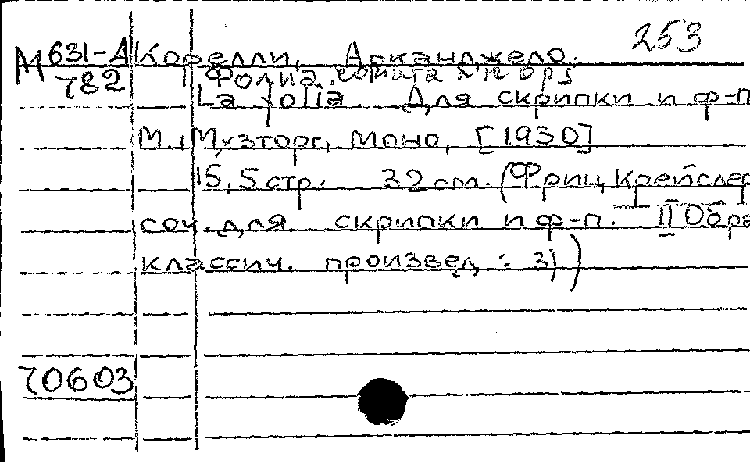 253
М 631-А Корелли, Арканджело.
782 Фолиа. соната №12 op5
La folia. Для скрипки и ф-п
М., Музторг, Моно, [1930]
15, 5 стр. 32 см. (Фриц Крейслер
соч. для скрипки и ф-п. II Обра
классич. произвед: 3))
70603